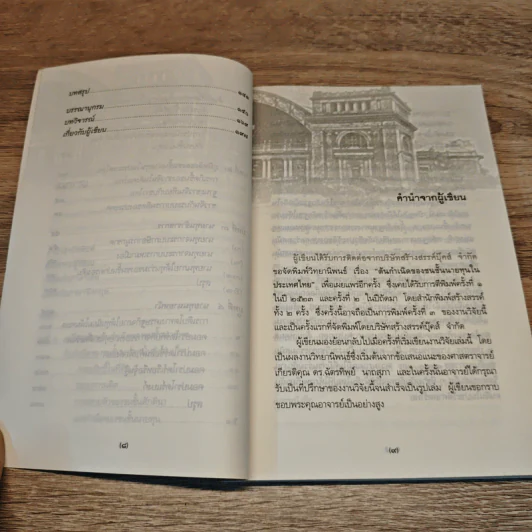 บทสรุป
บรรณานุกรม
บทวิจารณ์
เกี่ยวกับผู้เขียน
(๘)
คำนำจากผู้เขียน
ผู้เขียนได้รับการติดต่อจากบริษัทสร้างสรรค์บุ๊คส์ จำกัด
ขอจัดพิมพ์วิทยานิพนธ์ เรื่อง "ต้นกำเนิดของชนชั้นนายทุนใน
ประเทศไทย" เพื่อเผยแพร่อีกครั้ง ซึ่งเคยได้รับตีพิมพ์ครั้งที่ ๑
ในปี ๒๕๒๓ และครั้งที่ ๒ ในปีถัดมา โดยสำนักพิมพ์สร้างสรรค์
ทั้ง ๒ ครั้ง ซึ่งครั้งนี้อาจถือเป็นการพิมพ์ครั้งที่ ๓ ของงานวิจัยนี้
และเป็นครั้งแรกที่จัดพิมพ์โดยบริษัทสร้างสรรค์บุ๊คส์ จำกัด
ผู้เขียนมองย้อนกลับไปเมื่อครั้งที่เริ่มเขียนงานวิจัยเล่มนี้ โดย
เป็นผลงานวิทยานิพนธ์ซึ่งเริ่มต้นจากข้อเสนอแนะของศาสตราจารย์
เกียรติคุณ ดร.ฉัตรทิพย์ นาถสุภา และในครั้งนั้นอาจารย์ได้กรุณา
รับเป็นที่ปรึกษาของงานวิจัยนี้จนสำเร็จเป็นรูปเล่ม ผู้เขียนขอกราบ
ขอบพระคุณอาจารย์เป็นอย่างสูง
(๙)